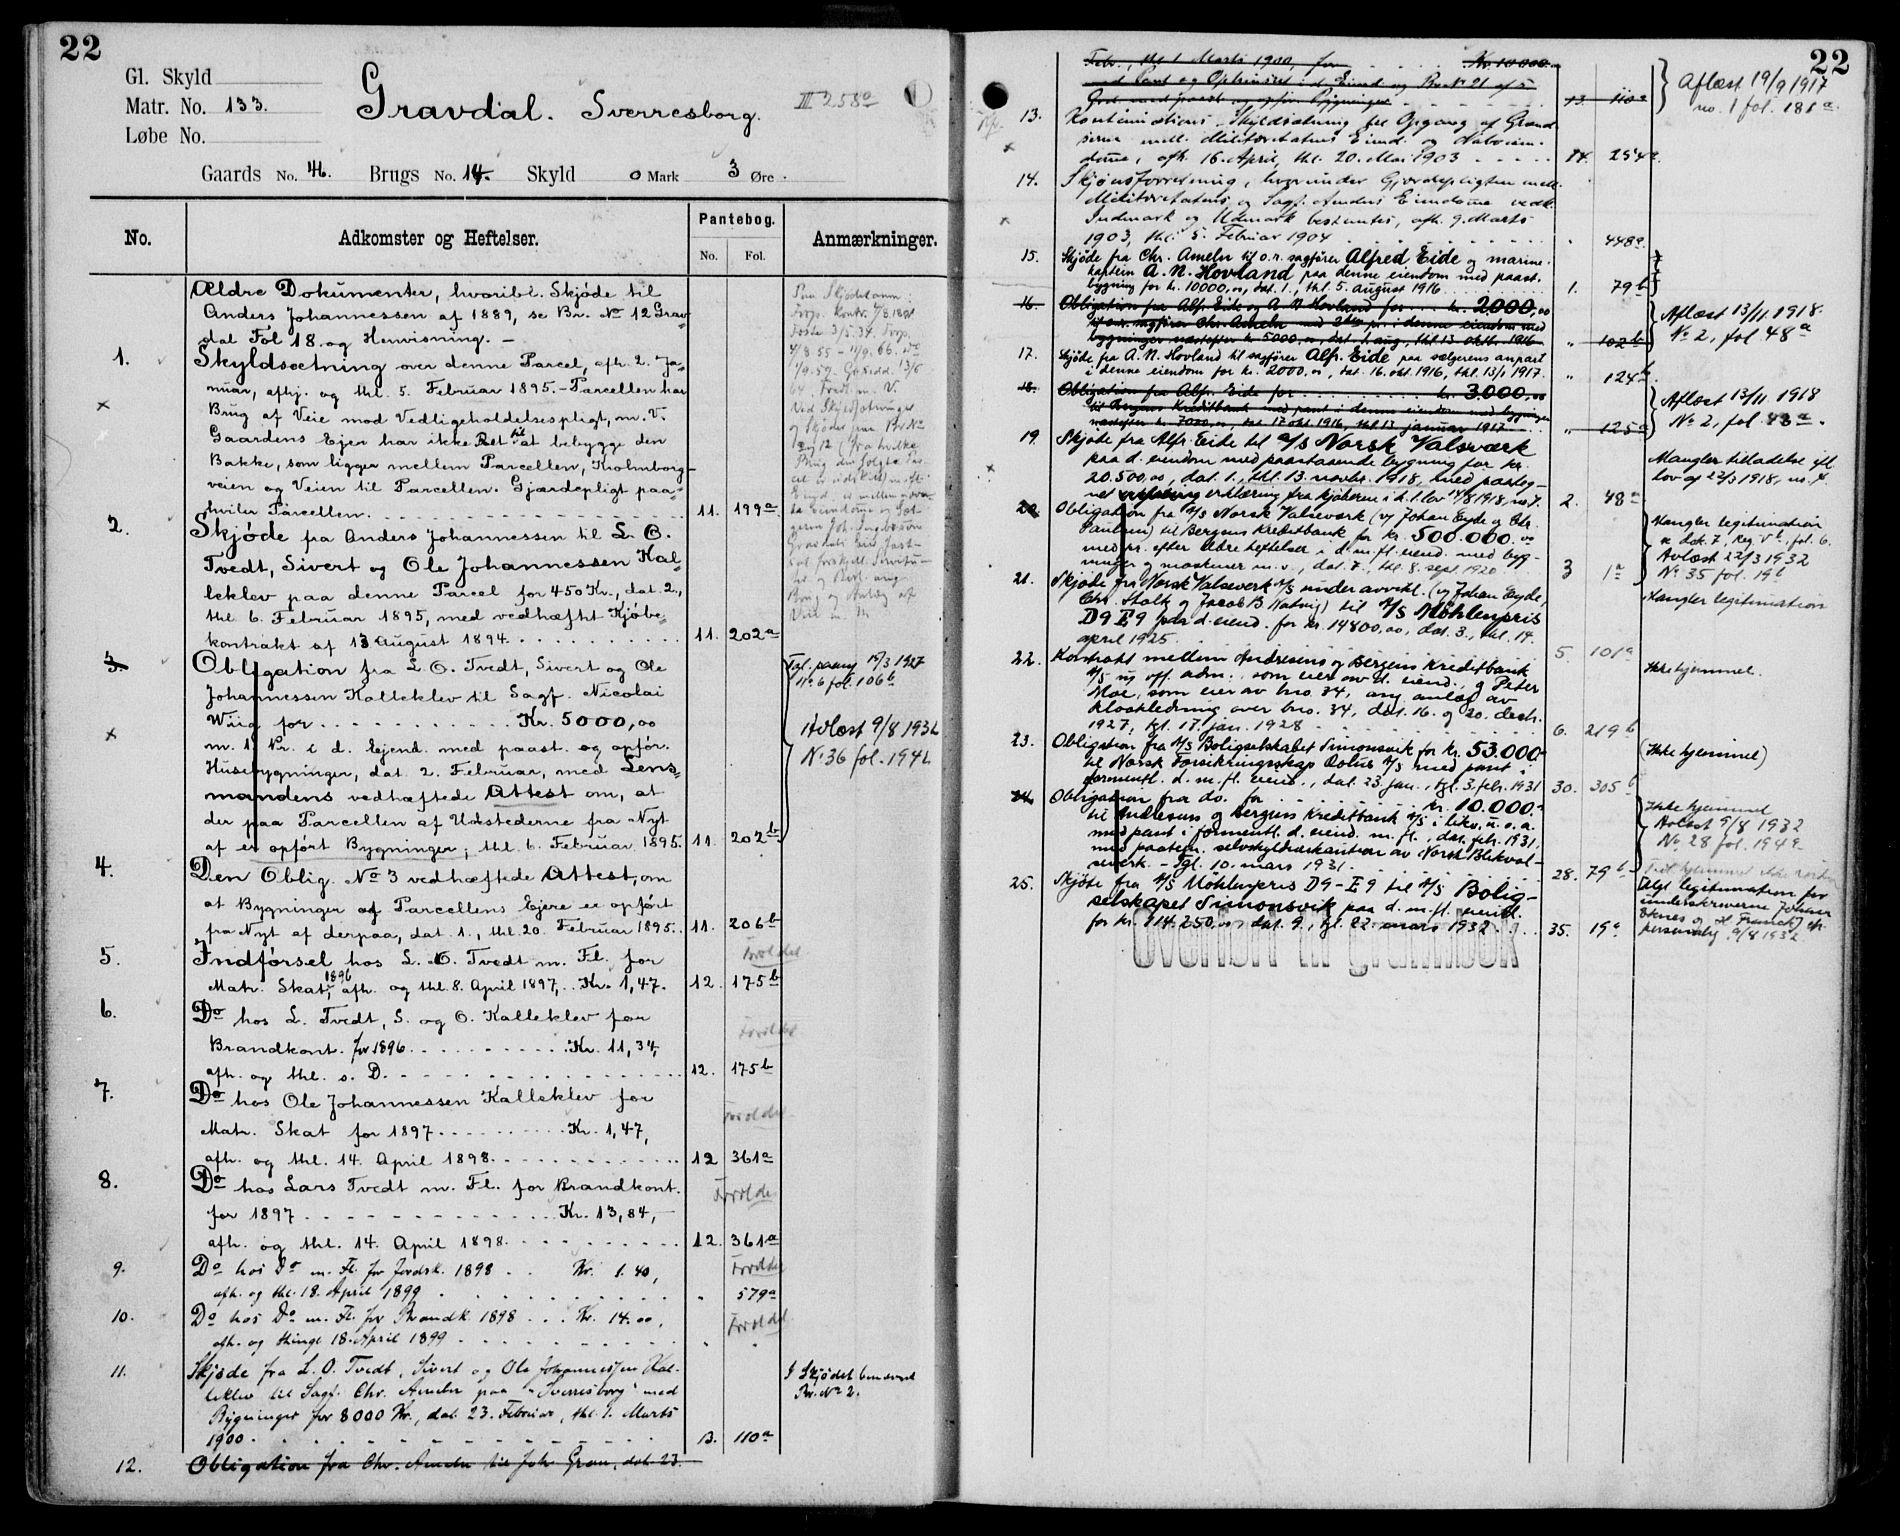 22
Gl. Skyld
Matr. No. 133.
Løbe No.
Gravdal. Sverresborg.
III 258a
Gaards No. 41. Brugs No. 14. Skyld 0 Mark 3 Øre.
No. Adkomster og Heftelser. Pantebog. No. Fol. Anmærkninger.
Ældre Dokumenter, hvoribl. Skjøde til
Anders Johannessen af 1889, se Br. No 12 Grav-
dal Fol 18 og Henvisning. —
1. Skyldsætning over denne Parcel, afh. 2. Ja-
nuar, afhj. og thl. 5. Februar 1895. – Parcellen har
Brug af Veie mod Vedligeholdelsespligt, m. V.
Gaardens Ejer har ikke Ret til at bebygge den
Bakke, som ligger mellem Parcellen, Kholmborg-
veien og Veien til Parcellen. Gjærdepligt paa-
hviler Parcellen. 11. 199a
2. Skjøde fra Anders Johannessen til L. O.
Tvedt, Sivert og Ole Johannessen Kal-
leklev paa denne Parcel for 450 Kr., dat. 2.,
thl. 6. Februar 1895, med vedhæftet Kjøbe-
kontrakt af 13 August 1894. 11. 202a
3. Obligation fra L. O. Tvedt, Sivert og Ole
Johannessen Kalleklev til Sagf. Nicolai
Wiig for Kr. 5000,00
m. 1. Pr. i d. Ejend. med paast. og opfør.
Husebygninger, dat. 2. Februar, med Lens-
mandens vedhæftede Attest om, at
der paa Parcellen af Udstederne fra Nyt
af er opført Bygninger; thl. 6. Februar 1895. 11. 202b
Tgl. paany 19/3 1927
No 6 fol. 106b
Avlæst 9/8 1932
No 36 fol. 194b
4. Den Oblig. No 3 vedhæftede Attest, om
at Bygninger af Parcellens Ejere er opført
fra Nyt af derpaa, dat. 1., thl. 20. Februar 1895. 11. 206b
5. Indførsel hos L. O. Tvedt m. Fl. for
Matr. Skat, 1896 afh. og thl. 8. April 1897, Kr. 1,47. 12. 175b
Forældet
6. Do hos L. Tvedt, S. og O. Kalleklev for
Brandkont. for 1896 Kr. 11,34,
afh. og thl. s. D. 12. 175b
Forældet
7. Do hos Ole Johannessen Kalleklev for
Matr. Skat for 1897 Kr. 1,47,
afh. og thl. 14. April 1898. 12 361a
Forældet
8. Do hos Lars Tvedt m. Fl. for Brandkont.
for 1897 Kr. 13,84,–
afh. og thl. 14. April 1898. 12. 361a
Forældet
9. Do hos Do m. Fl. for Jordsk. 1898 Kr. 1.40,
afh. og thl. 18. April 1899 " 579a
Forældet
10. Do hos Do m. Fl. for Brandk. 1898 Kr. 14.00,
afh. og thingl. 18. April 1899 " "
Forældet
11. Skjøde fra L. O. Tvedt, Sivert og Ole Johannessen Kal-
leklev til Sagf. Chr. Ameln paa "Sverresborg" med
Bygninger for 8000 Kr., dat. 23. Februar, thl. 1. Marts
1900. 13. 110a
I Skjødet benævnt
Br. No 2.
12. Obligation fra Chr. Ameln til Joh. Gran, dat. 23.
22
Febr., thl. 1 Marts 1900, for Kr 10000
med Pant og Oprinret i d. Eiend. og Br. No 21 af 5
God. med paast. og opfør. Bygninger 13. 110a
Aflæst 19/9 1917
no. 1 fol. 181a
13. Kontinuations-Skyldsætning til Opgang af Grænd-
serne mell. Militæretatens Eiend. og Naboeien-
domme, afh. 16. April, thl. 20. Mai 1903 14. 254a
14. Skjønsforretning, hvorunder Gjærdepligten mell.
Militæretatens og Sagf. Amelns Eiendomme vedk.
Indmark og Udmark bestemtes, afh. 9. Marts
1903, thl. 5. Februar 1904 " 448a
15. Skjøde fra Chr. Ameln til o. r. sagfører Alfred Eide og marine-
kaptein A. N. Hovland paa denne eiendom med paast.
bygning for kr. 10000,00, dat. 1., thl. 5. august 1916 1. 79b
16. Obligation fra Alf. Eide og A. N. Hovland for kr. 2000,00
til o. r. sagfører Chr. Ameln med 2den pr. i denne eiendom med
bygninger næstefter kr. 5000,00, dat. 1. aug., thl. 13 oktb. 1916 " 102b
Aflæst 13/11 1918.
No 2, fol. 48a
17. Skjøde fra A. N. Hovland til sagfører Alfr. Eide paa sælgerens anpart
i denne eiendom for kr. 2000,00, dat. 16. okt. 1916, thl. 13/1 1917. " 124b
18. Obligation fra Alfr. Eide for kr. 3000,00
til Bergens Kreditbank med pant i denne eiendom med bygninger
næstefter kr. 7000,00, dat. 17 okt. 1916, thl. 13 januar 1917 " 125a
Aflæst 13/11 1918
No 2, fol. 48a.
19. Skjøde fra Alfr. Eide til A/S Norsk Valsværk
paa d. eiendom med paastaaende bygning for kr.
20.500,00, dat. 1., thl. 13. novbr. 1918, med paateg-
net erklæring fra kjøberen i h. t. lov 14/8 1918, no. 7. 2. 48a
Mangler tilladelse ifl.
lov af 22/3 1918, no. 7.
20. Obligation fra A/S Norsk Valseverk (v/ Johan Eyde og Chr.
Paulsen) til Bergens Kreditbank for kr. 500.000.00
med pr. efter ældre heftelser i d. m. fl. eiend. med byg-
ninger og maskiner m. v., dat. 7., thl. 8. sept. 1920 3 1a
Mangler legitimation
se dok. 7, Reg. V b, fol. 6.
Avlæst 22/3 1932
No 35 fol. 19b
21. Skjøde fra Norsk Valseverk A/S under avvikl. (v/ Johan Eyde,
Chr. Stolk og Jacob B. Natvig) til A/S Møhlenpris
D9 E9 paa d. eiend. for kr. 14800,00, dat. 3., thl. 14.
april 1925. 5. 101a
Mangler legitimation
22. Kontrakt mellem Andresens og Bergens Kreditbank
A/S u/ off. adm., som eier av d. eiend., og Peter
Moe, som eier av bno. 34, ang. anlæg av
kloakledning over bno. 34, dat. 16. og 20. desbr.
1927, tgl. 17. jan. 1928 6. 219b
Ikke hjemmel.
23. Obligation fra A/S Boligselskabet Simonsvik for kr. 53.000.-
til Norsk Forsikringsskap Æolus A/S med pant i
formentl. d. m. fl. eiend., dat. 23. jan., tgl. 3. febr. 1931 30. 305b
(Ikke hjemmel)
24. Obligation fra do. for kr. 10.000.-
til Andresens og Bergens Kreditbank A/S i likv. u. o. a.
med pant i formentl. d. eiend. m. fl., dat. febr. 1931.
med paategn. selvskyldnerkaution av Norsk Blikval-
severk. – Tgl. 10. mars 1931. 28. 79b
Ikke hjemmel
Avlæst 9/8 1932
No. 28 fol. 194a
25. Skjøte fra A/S Møhlenpris D9-E9 til A/S Bolig-
selskapet Simonsvik paa d. m. fl. eiend.
for kr. 114.250,00, dat. 9., tgl. 22. mars 1932 35. 19a
Overført til grunnbok